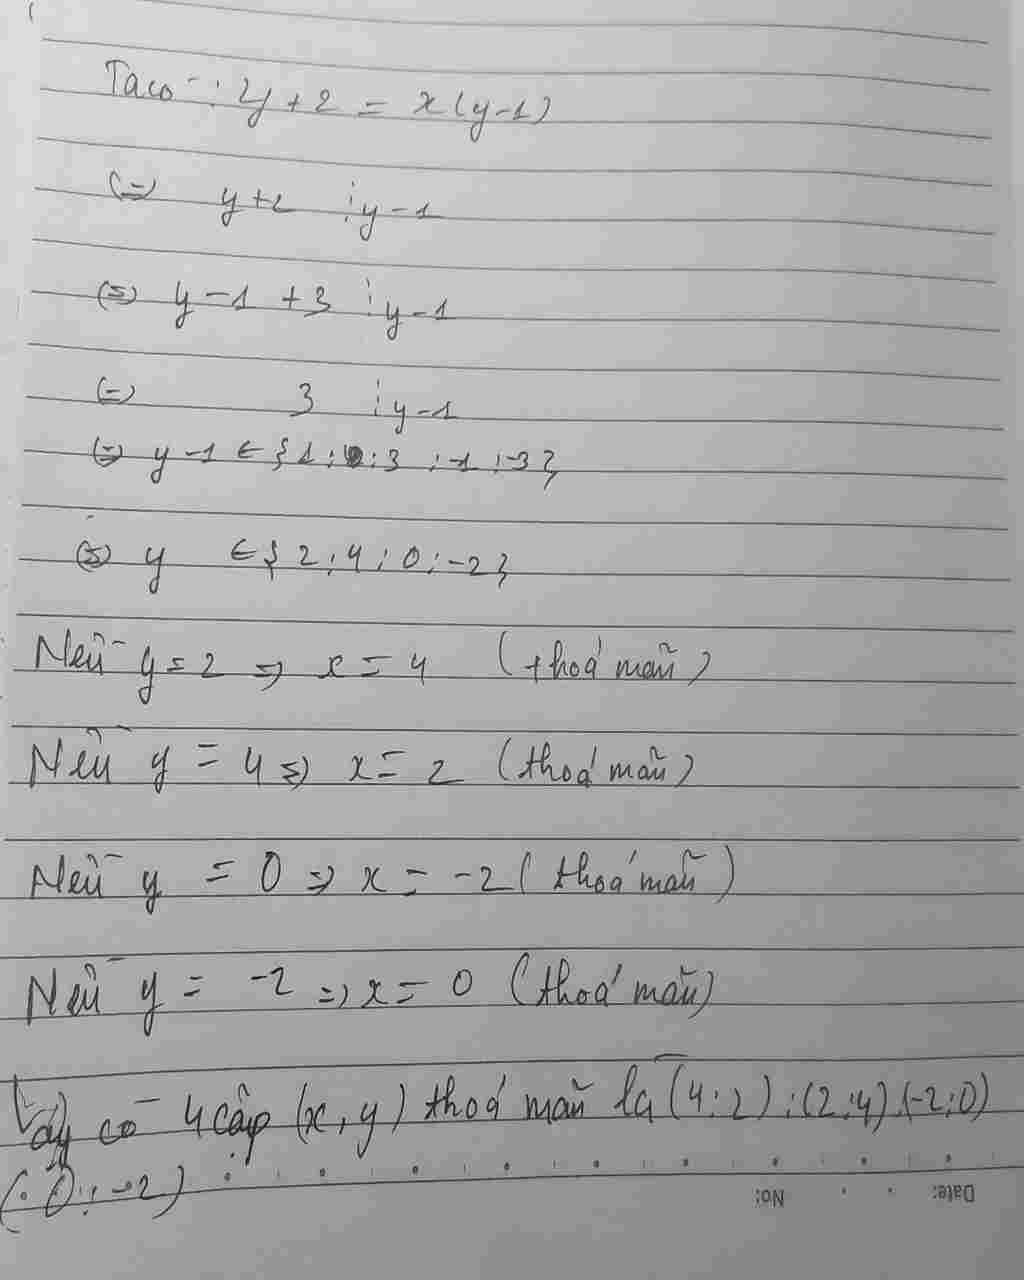 Ta có : 2y + 2 = x(y-1)
(=) y+2 ⋮ y-1
(=) y-1 +3 ⋮ y-1
(=) 3 ⋮ y-1
(=) y-1 ∈ {1 ; 3 ; -1 ; -3}
(=) y ∈ { 2 ; 4 ; 0 ; -2}
Nếu y = 2 => x = 4 (thoả mãn)
Nếu y = 4 => x = 2 (thoả mãn)
Nếu y = 0 => x = -2 (thoả mãn)
Nếu y = -2 => x = 0 (thoả mãn)
Vậy có 4 cặp (x, y) thoả mãn là (4;2) ; (2;4) (-2;0)
(0 ; -2)
No: Date: